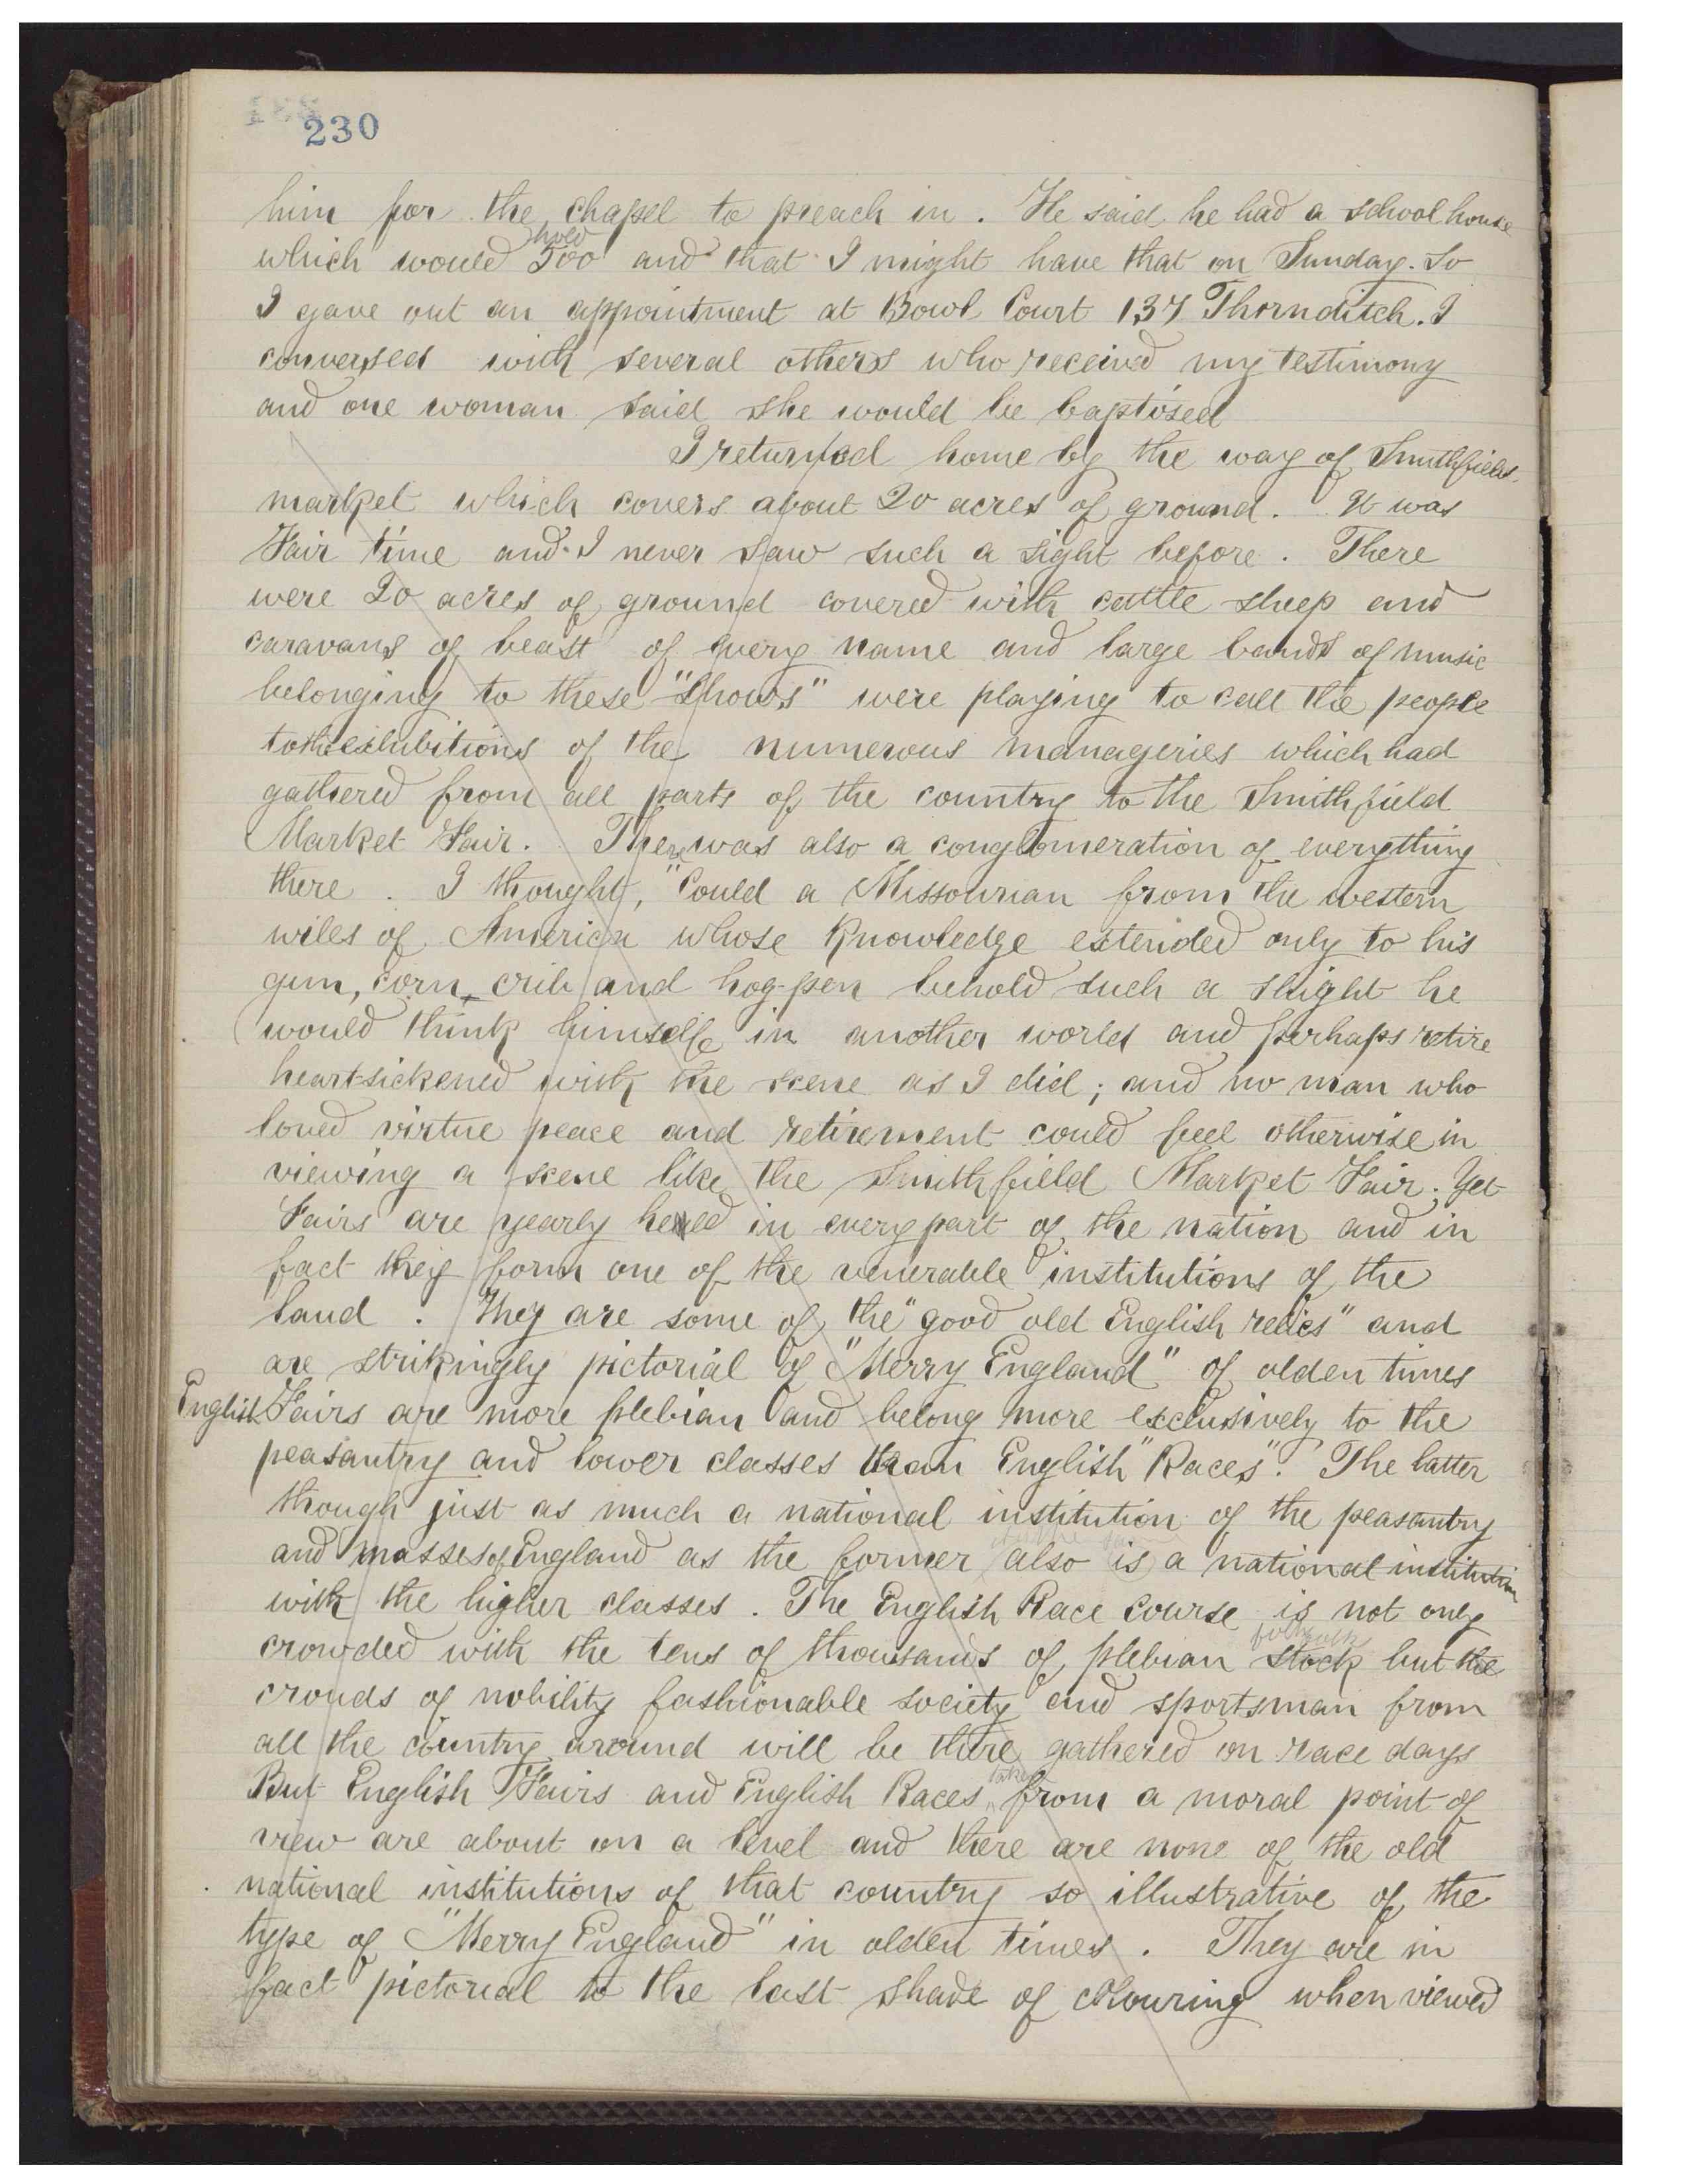 230
him for the chapel to preach in. He said he had a school house
which would hold 500 and that I might have that on Sunday. So
I gave out an appointment at Bowl Court 137 Thornditch. I
conversed with several others who received my testimony
and one woman said she would be baptised
I returned home by the way of Smithfield
market which covers about 20 acres of ground. It was
Fair time and I never saw such a sight before. There
were 20 acres of ground covered with cattle sheep and
caravans of beast of every name and large bands of music
belonging to these "Shows" were playing to call the people
to the exhibitions of the numerous manageries which had
gathered from all parts of the country to the Smithfield
Market Fair. There was also a conglomeration of everything
there. I thought, "Could a Missourian from the western
wiles of America whose knowledge extended only to his
gun, corn-crib and hog-pen behold such a sight he
would think himself in another world and perhaps retire
heart-sickened with the scene as I did; and no man who
loved virtue peace and retirement could feel otherwise in
viewing a scene like the Smithfield Market Fair. Yet
Fairs are yearly held in every part of the nation and in
fact they form one of the venerable institutions of the
land. They are some of the "good old English relics" and
are strikingly pictorial of "Merry England" of olden times
English Fairs are more plebian and belong more exclusively to the
peasantry and lower classes than English "Races". The latter
though just as much a national institution of the peasantry
and masses of England as the former also is a national institution
with the higher classes. The English Race course is not only
crowded with the tens of thousands of plebian stock but the
crouds of nobility fashionable society and sportsman from
all the country around will be there gathered on race days
But English Fairs and English Races taken from a moral point of
view are about on a level and there are none of the old
national institutions of that country so illustrative of the
type of "Merry England" in olden times. They are in
fact pictorial to the last shade of colouring when viewed